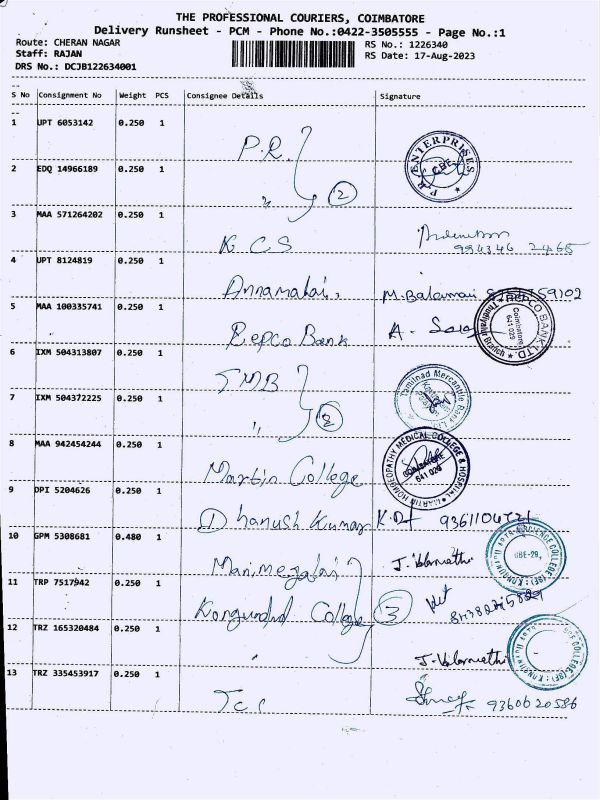 THE PROFESSIONAL COURIERS, COIMBATORE
Delivery Runsheet - PCM - Phone No.:0422-3505555 - Page No.:1
Route: CHERAN NAGAR
RS No.: 1226340
Staff: RAJAN
RS Date: 17-Aug-2023
DRS No.: DCJB122634001
S No Consignment No Weight PCS Consignee Details Signature
1 UPT 6053142 0.250 1 P.R. P.R. ENTERPRISES CBE
2 EDQ 14966189 0.250 1 " 2
3 MAA 571264202 0.250 1 K CS
4 UPT 8124819 0.250 1 Annamalai,
5 MAA 100335741 0.250 1 Repco Bank A. REPCO BANK LTD. Thudiyalur Branch Coimbatore 641 029
6 IXM 504313807 0.250 1 TMB Tamilnad Mercantile Bank Ltd
7 IXM 504372225 0.250 1 " 2
8 MAA 942454244 0.250 1 Martin College MARTIN HOMOEOPATHY MEDICAL COLLEGE & HOSPITAL 641 029
9 DPI 5204626 0.250 1 Dhanush Kumar
10 GPM 5308681 0.480 1 Manimegalai CBE-29,
11 TRP 7517942 0.250 1 College 3
12 TRZ 165320484 0.250 1 "
13 TRZ 335453917 0.250 1 9360620586